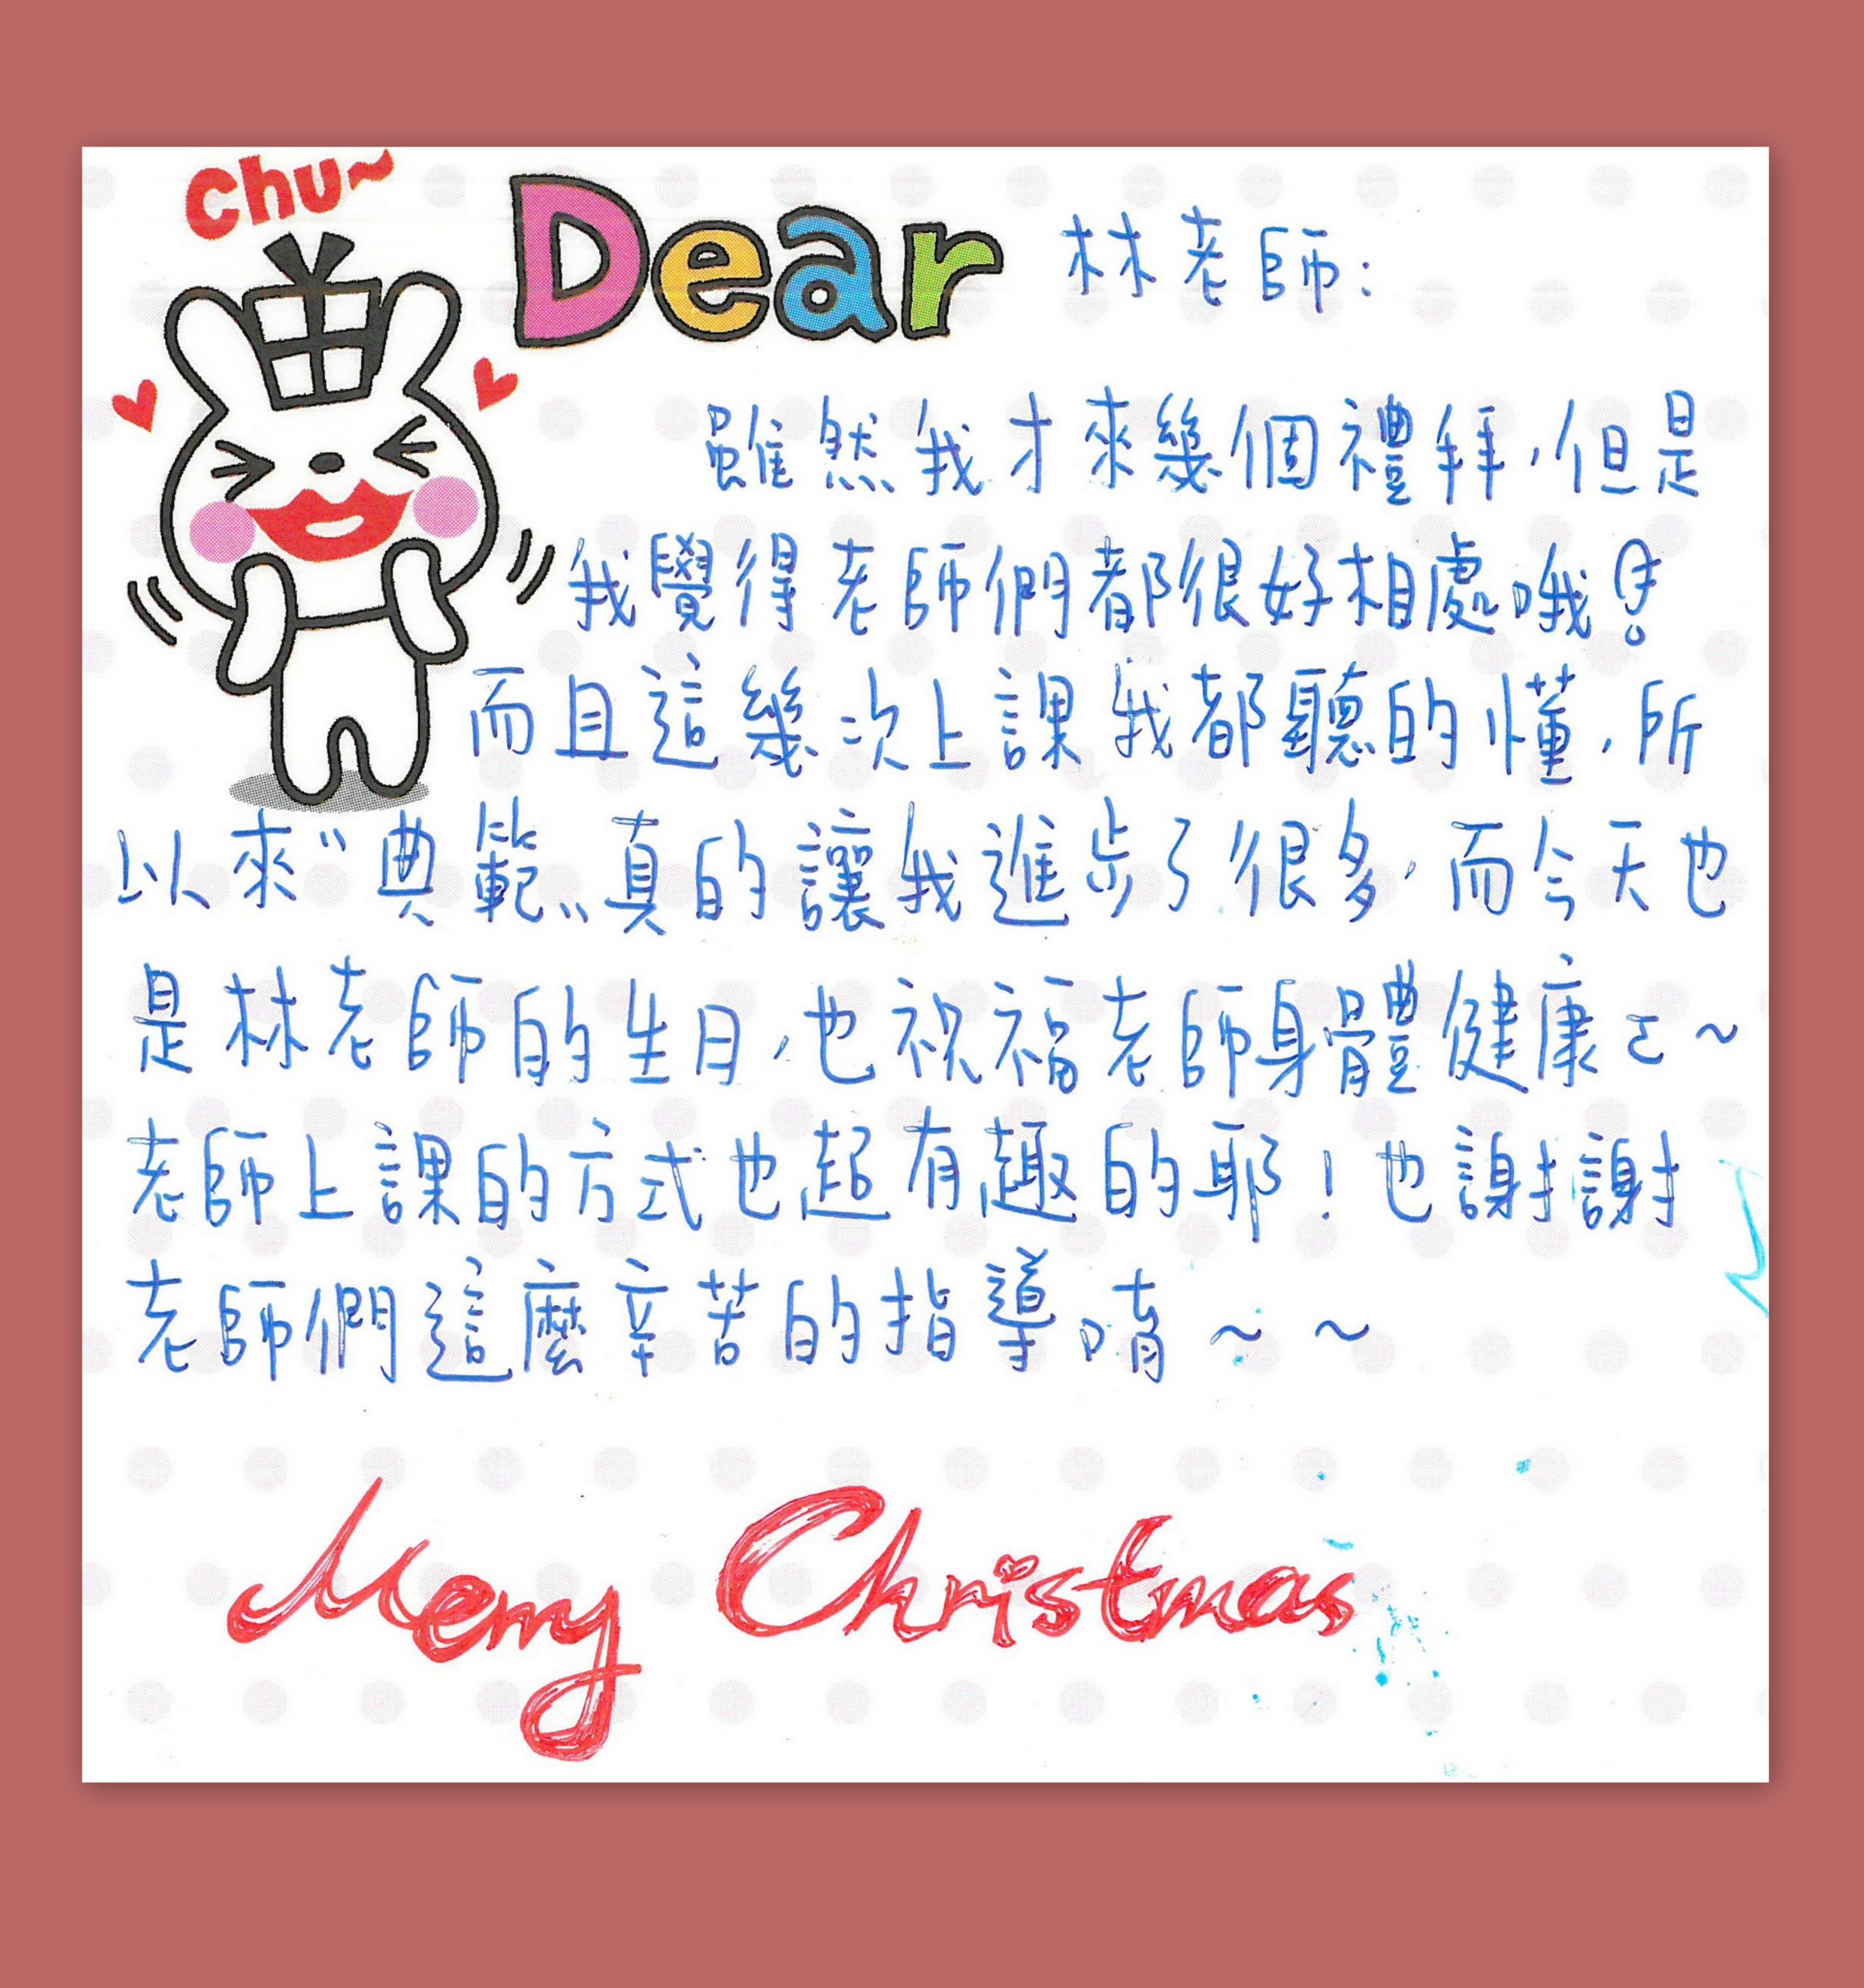 Chu~
Dear 林老師：
雖然我才來幾個禮拜，但是
我覺得老師們都很好相處哦！
而且這幾次上課我都聽的懂，所
以來〝典範〞真的讓我進步了很多，而今天也
是林老師的生日，也祝福老師身體健康ㄛ~
老師上課的方式也超有趣的耶！也謝謝
老師們這麼辛苦的指導唷~~
Merry Christmas